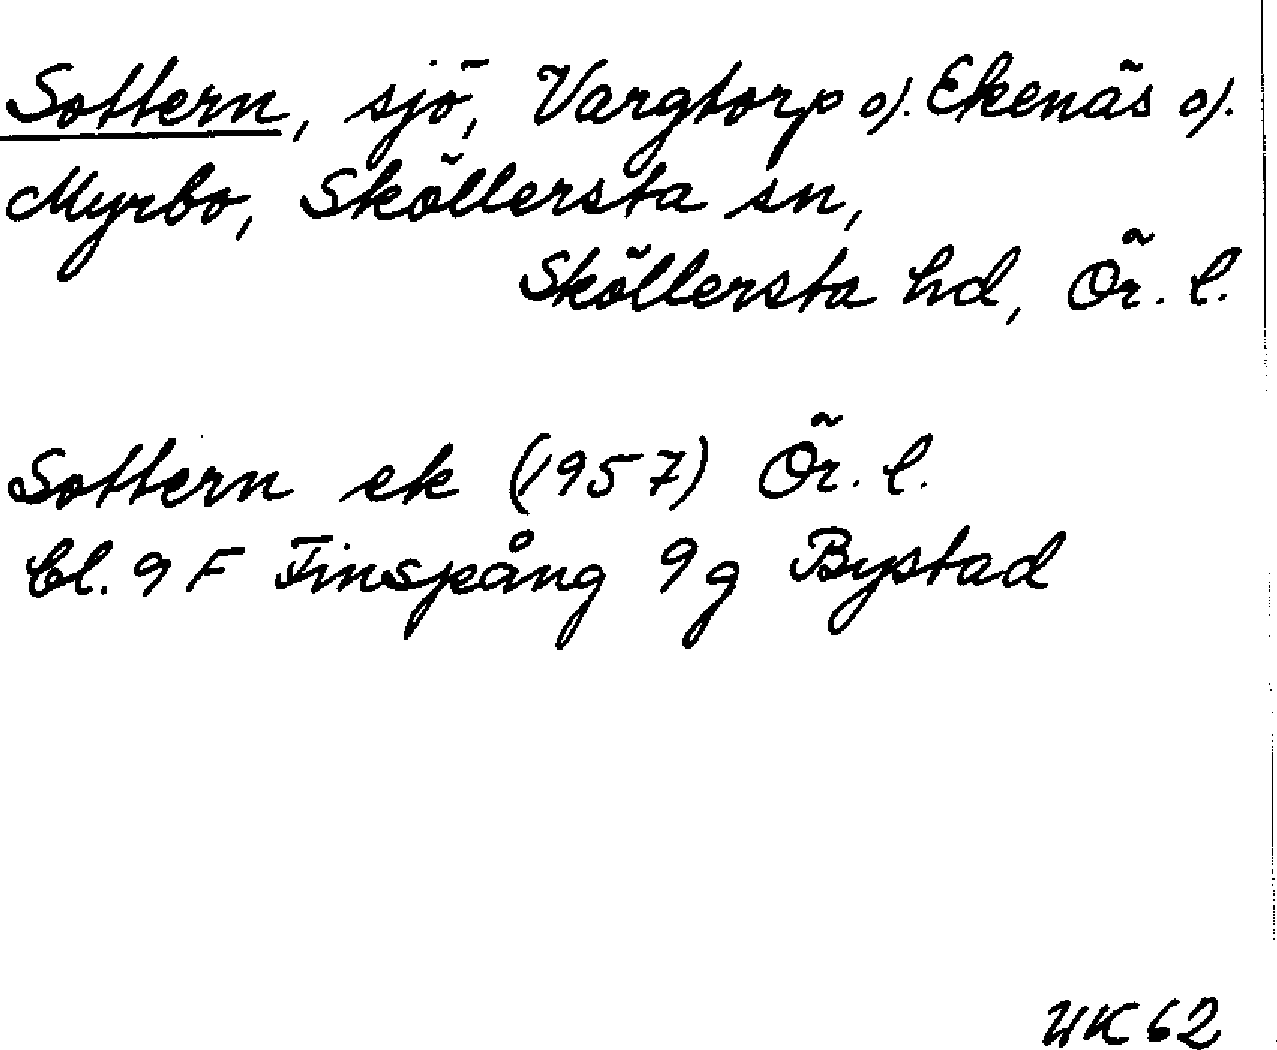 Sottern, sjö, Vargtorp o). Ekenäs o).
Myrbo, Sköllersta sn,
Sköllersta hd, Ör. l.
Sottern ek (1957) Ör. l.
bl. 9 F Finspång 9 g Bystad
UK 62